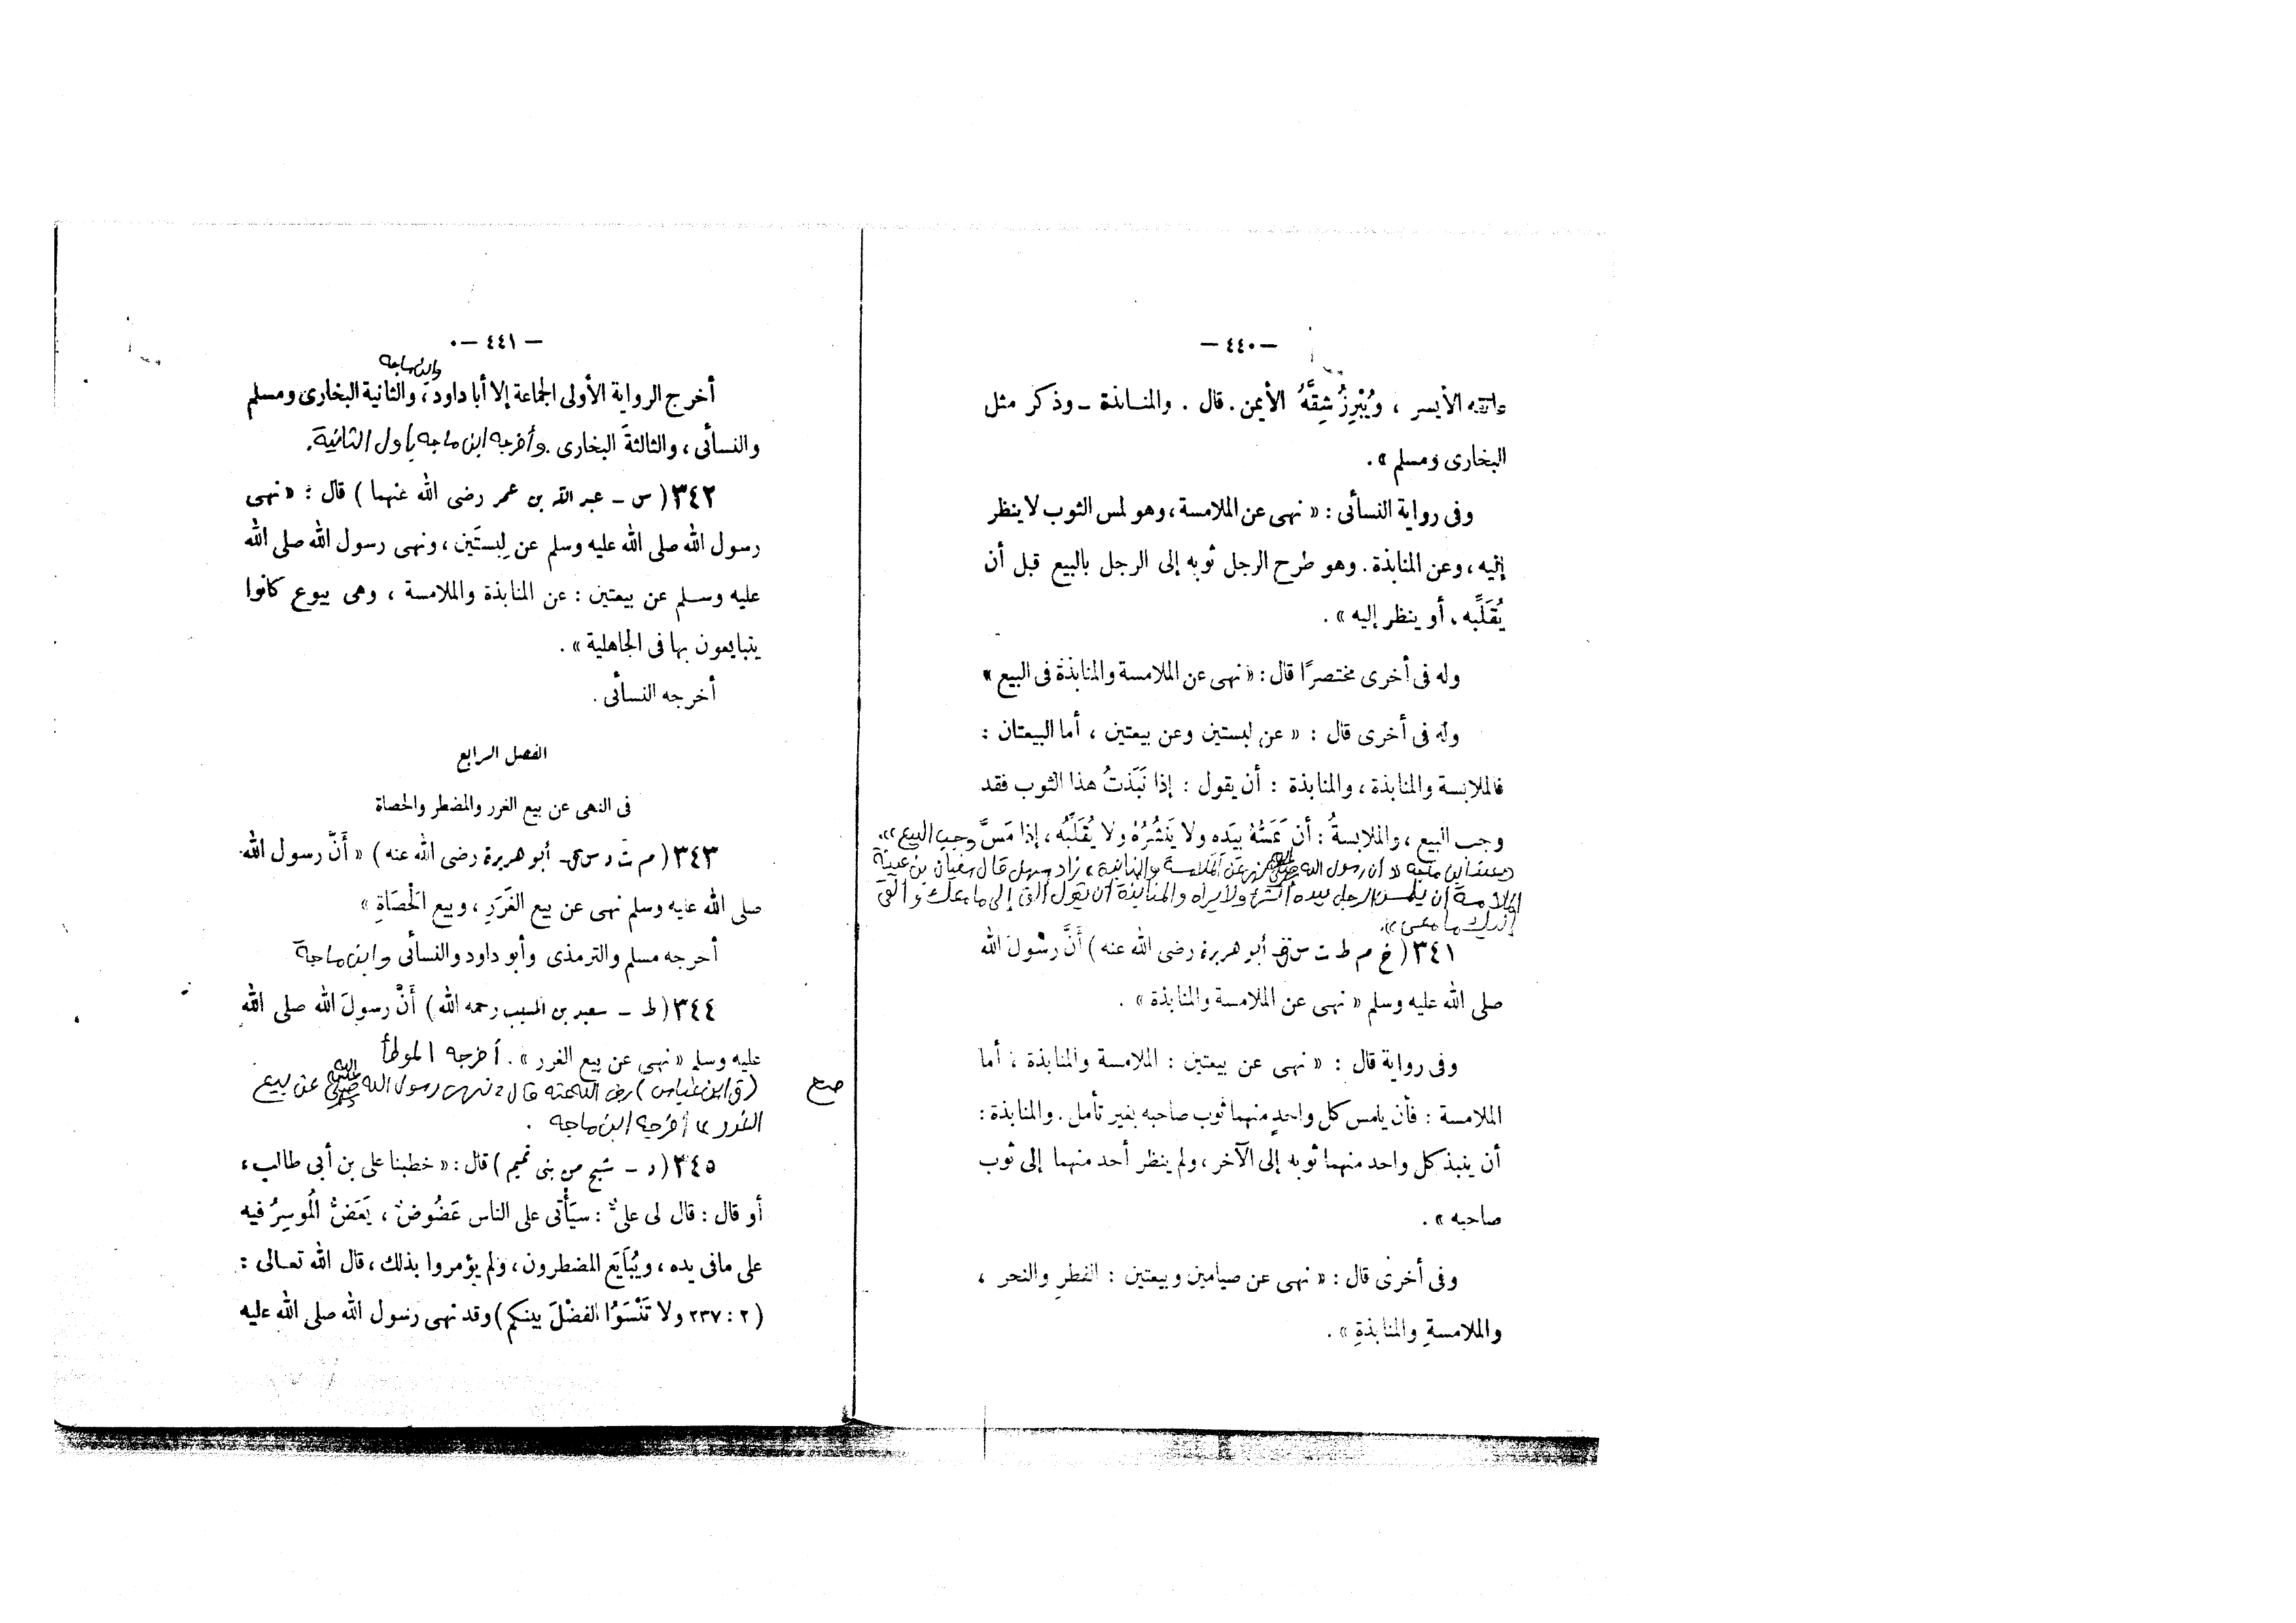 — ٤٤٠ —
عاتقه الأيسر ، ويُبْرِزُ شِقَّهُ الأيمن . قال . والمنابذة ــ وذكر مثل
البخارى ومسلم » .
وفى رواية النسائى : « نهى عن الملامسة ، وهو لمس الثوب لا ينظر
إليه ، وعن المنابذة . وهو طرح الرجل ثوبه إلى الرجل بالبيع قبل أن
يُقَلِّبه ، أو ينظر إليه » .
وله فى أخرى مختصرًا قال : « نهى عن الملامسة والمنابذة فى البيع »
وله فى أخرى قال : « عن لبستين وعن بيعتين ، أما البيعتان :
فالملابسة والمنابذة ، والمنابذة : أن يقول : إذا نَبَذتُ هذا الثوب فقد
وجب البيع ، والملابسةُ : أن يَمَسَّهُ بيَدِه ولا يَنشُرُهُ ولا يُقَلِّبُه ، إذا مَسَّ وجب البيع » .
وعند ابن ماجه « أن رسول الله صلى الله نهى عن الملامسة والمنابذة ، زاد سهل قال سفيان بن عيينة
الملامسة أن يلمس الرجل بيده الشئ ولا يراه والمنابذة أن يقول ألق إلى ما معك وألقى
إليك ما معى » .
٣٤١ ( خ م ط ت س ق ـ أبو هريرة رضى الله عنه ) أَنَّ رسُولَ الله
صلى الله عليه وسلم « نهى عن الملامسة والمنابذة » .
وفى رواية قال : « نهى عن بيعتين : الملامسة والمنابذة ، أما
الملامسة : فأن يلمس كل واحدٍ منهما ثوب صاحبه بغير تأمل . والمنابذة :
أن ينبذ كل واحد منهما ثوبه إلى الآخر ، ولم ينظر أحد منهما إلى ثوب
صاحبه » .
وفى أخرى قال : « نهى عن صيامين وبيعتين : الفطرِ والنحر ،
والملامسةِ والمنابذةِ » .
— ٤٤١ —
وابن ماجه
أخرج الرواية الأولى الجماعة إلا أبا داود ، والثانية البخارى ومسلم
والنسائى ، والثالثةَ البخارى . وأخرجه ابن ماجه بأول الثانية .
٣٤٢ ( س ــ عبد الله بن عمر رضى الله عنهما ) قال : « نهى
رسول الله صلى الله عليه وسلم عن لِبستَين ، ونهى رسول الله صلى الله
عليه وسلم عن بيعتين : عن المنابذة والملامسة ، وهى بيوع كانوا
يتبايعون بها فى الجاهلية » .
أخرجه النسائى .
الفصل الرابع
فى النهى عن بيع الغرر والمضطر والحصاة
٣٤٣ ( م ت د س ق ـ أبو هريرة رضى الله عنه ) « أَنَّ رسول الله
صلى الله عليه وسلم نهى عن بيع الغَرَرِ ، وبيع الْحصَاةِ »
أخرجه مسلم والترمذى وأبو داود والنسائى وابن ماجة
٣٤٤ ( ط ــ سعيد بن المسيب رحمه الله ) أَنَّ رسولَ الله صلى الله
عليه وسلم « نهى عن بيع الغرر » . أخرجه الموطأ
صح ( ق ابن عباس ) رضى الله عنه قال « نهى رسول الله صلى الله عليه وسلم عن بيع
الغرر » أخرجه ابن ماجه .
٣٤٥ ( د ــ شيخ من بنى تميم ) قال : « خطبنا على بن أبى طالب ،
أو قال : قال لى علىٌّ : سيَأْتى على الناس عَضُوضٌ ، يَعَضُّ الْمُوسِرُ فيه
على ما فى يده ، ويُبَايَع المضطرون ، ولم يؤمروا بذلك ، قال الله تعالى :
( ٢ : ٢٣٧ ولا تَنْسَوُا الفضْلَ بينكم ) وقد نهى رسول الله صلى الله عليه